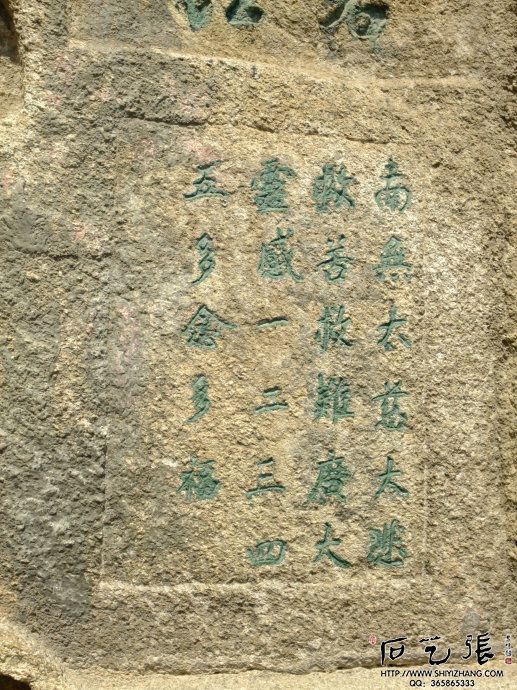 南無大慈大悲
救苦救難廣大
靈感一二三四
五多念多福
石艺張
HTTP://WWW.SHIYIZHANG.COM
QQ: 365865333